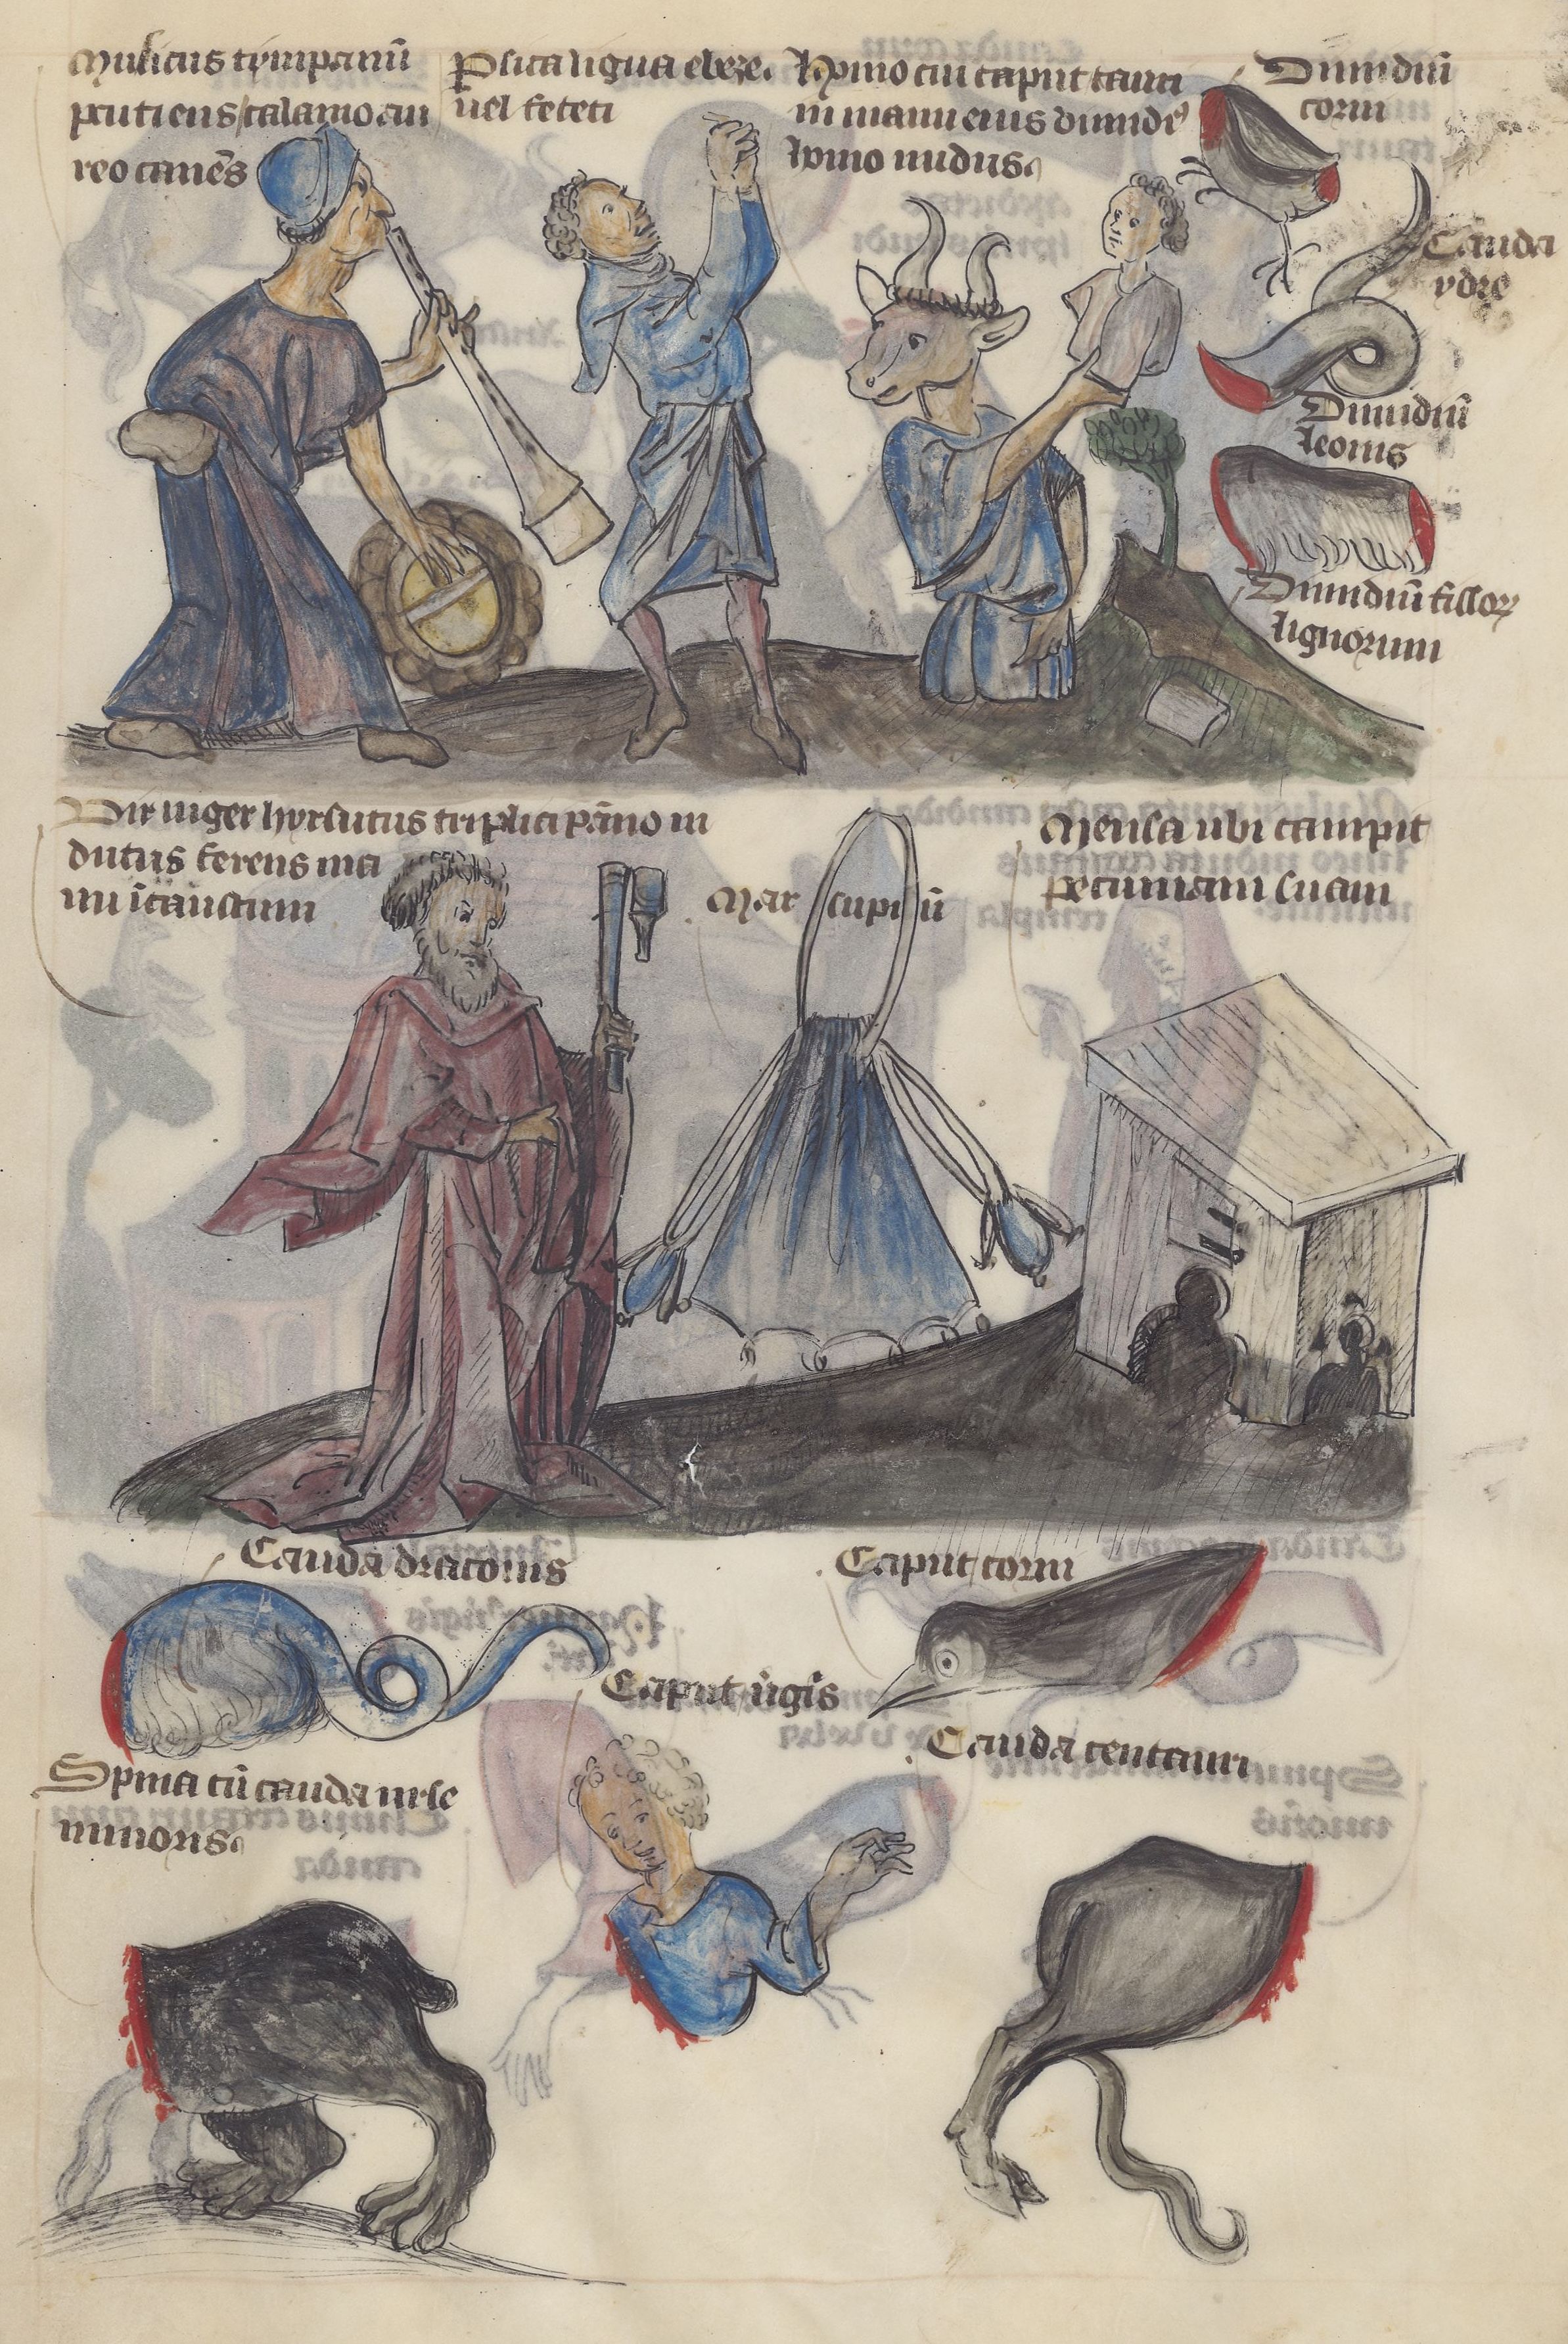 Musicus tympanū
pcutiens calamo au
reo canēs
Psita ligua eleze.
uel feteti
Homo cui caput tauri
in manu eius dimidꝰ
homo nudus.
Dimidiū
corui
Cauda
ydre
Dimidiū
leonis
Dimidiū fissoꝝ
lignorum
Vir niger hyrsutus triplici pāno in
dutus ferens ma
nu īcaustum
Marsupiū
Mensa ubi accipit
pecuniam suam
Cauda draconis
Caput corui
Caput ūgīs
Cauda centauri
Spina cū cauda urse
minoris.